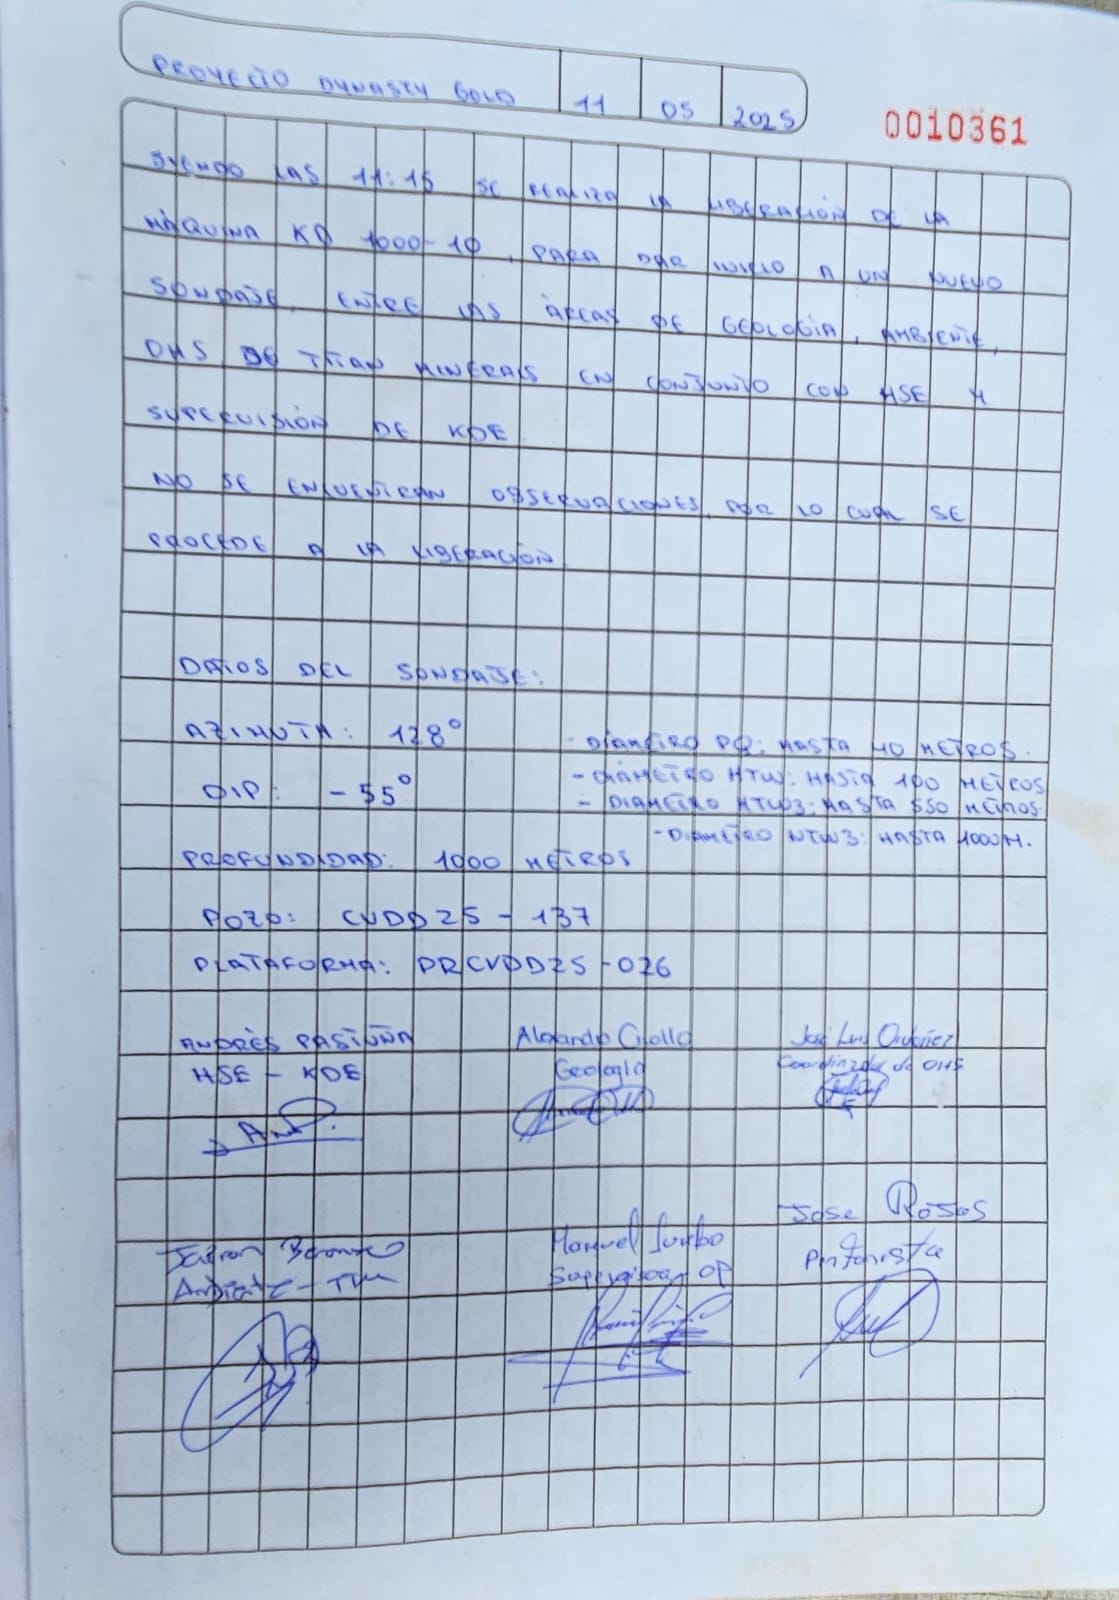 PROYECTO DYNASTY GOLD 11 05 2025
0010361
SIENDO LAS 11:15 SE REALIZA LA LIBERACIÓN DE LA
MÁQUINA KD 1000-10, PARA DAR INICIO A UN NUEVO
SONDAJE, ENTRE LAS ÁREAS DE GEOLOGÍA, AMBIENTE,
OHS DE TITAN MINERALS EN CONJUNTO CON HSE Y
SUPERVISIÓN DE KDE
NO SE ENCUENTRAN OBSERVACIONES, POR LO CUAL SE
PROCEDE A LA LIBERACIÓN
DATOS DEL SONDAJE:
AZIMUTH: 128°
- DIÁMETRO PQ: HASTA 40 METROS.
- DIÁMETRO HTW: HASTA 100 METROS
DIP: -55°
- DIAMETRO HTW3: HASTA 550 METROS.
- DIAMETRO NTW3: HASTA 1000M.
PROFUNDIDAD: 1000 METROS
POZO: CVDD25-137
PLATAFORMA: PRCVDD25-026
ANDRÉS PASTUÑA
HSE - KDE
Alejandro Criollo
Geología
José Luis Ordóñez
Coordinador de OHS
Ambiente - TM
Manuel
Supervisor OP
Jose Rojas
Perforista